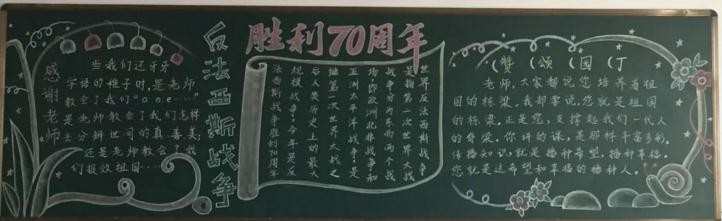 感谢老师
当我们还牙牙
学语的稚子时,是老师
教会了我们"a o e...."
是老师教会了我们怎样
去分辨世间的真善美,
还是老师教会了我
们报效祖国...
反法西斯战争
胜利70周年
世界反法西斯战争
是指第二次世界大战
战争分为东西两个战
场即欧洲北非战争和
亚洲太平洋战争。是
继第一次世界大战之
后人类历史上的最大
规模战争。今年是反
法西斯战争胜利70周年
(赞(颂(园(丁
老师,大家都说您培养着祖
国的栋梁,我却要说,您就是祖国
的栋梁。正是您,支撑起我们一代人
的脊梁。你讲的课,是那样丰富多彩,
传播知识,就是播种希望,播种幸福,
您就是这希望和幸福的播种人。